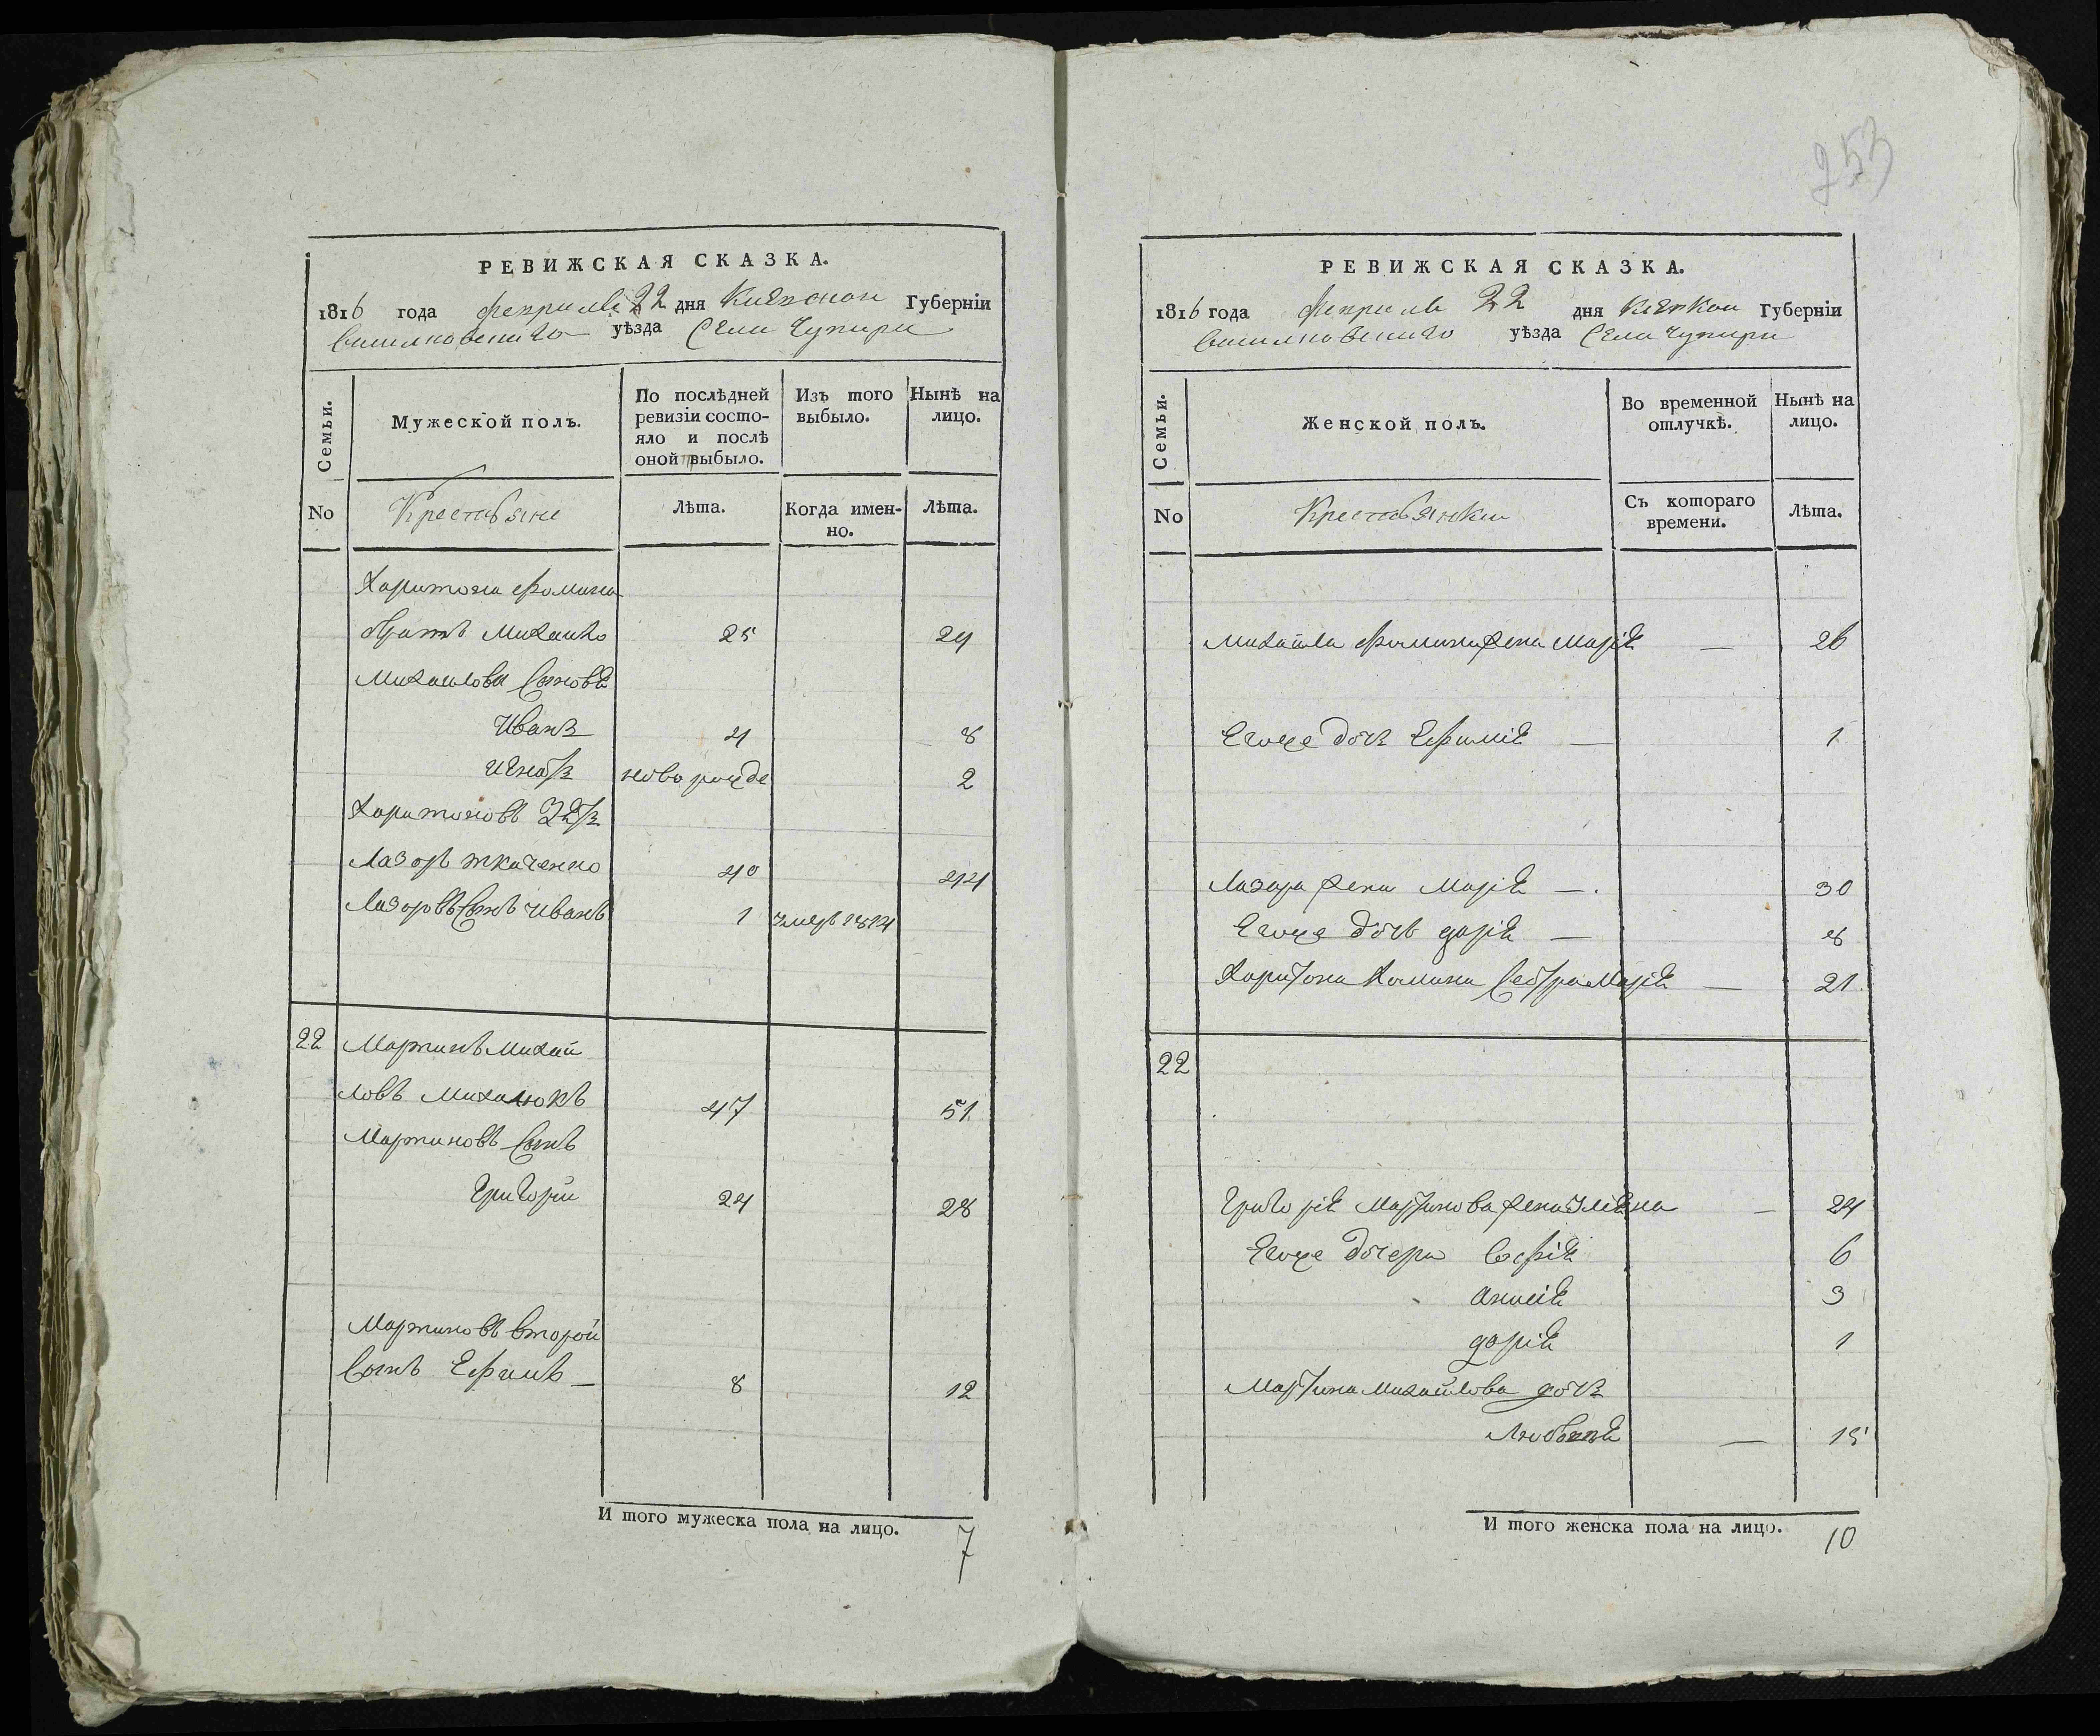 253
РЕВИЖСКАЯ СКАЗКА.
1816 года февраля 22 дня Киевской Губерніи
Василковскаго уѣзда Села Чупири
Семьи.
Мужеской полъ.
По послѣдней ревизіи состо-
яло и послѣ
оной выбыло.
Изъ того выбыло.
Нынѣ на лицо.
No
Крестьяне
Лѣта.
Когда имен-
но.
Лѣта.
Харитона Фомина
братъ Михайло 25 29
Михайлова Синовѣ
Иванъ 4 8
Игнатъ новорожде 2
Харитоновъ Зять
Лазоръ Ткаченко 40 44
Лазоровъ Синъ Иванъ 1 умеръ 1814
22 Мартинъ Михай
ловъ Михалюкъ 47 51
Мартиновъ Синъ
Григорій 24 28
Мартиновъ второй
Синъ Ефимъ — 8 12
И того мужеска пола на лицо. 7
РЕВИЖСКАЯ СКАЗКА.
1816 года февраля 22 дня Киевкой Губерніи
Василковскаго уѣзда Села Чупири
Семьи.
Женской полъ.
Во временной
отлучкѣ.
Нынѣ на
лицо.
No
Крестьянки
Съ котораго
времени.
Лѣта.
Михайла Фомина жена Марія — 26
Егоже дочъ Ефимія — 1
Лазара жена Марія — 30
Егоже дочь дарія — 8
Харитона Хомина Сестра Марія — 21
22
Григорія Мартинова жена Улияна — 24
Егоже дочери Софія 6
Анисія 3
дарія 1
Мартина Михайлова дочъ
— 15
И того женска пола на лицо. 10